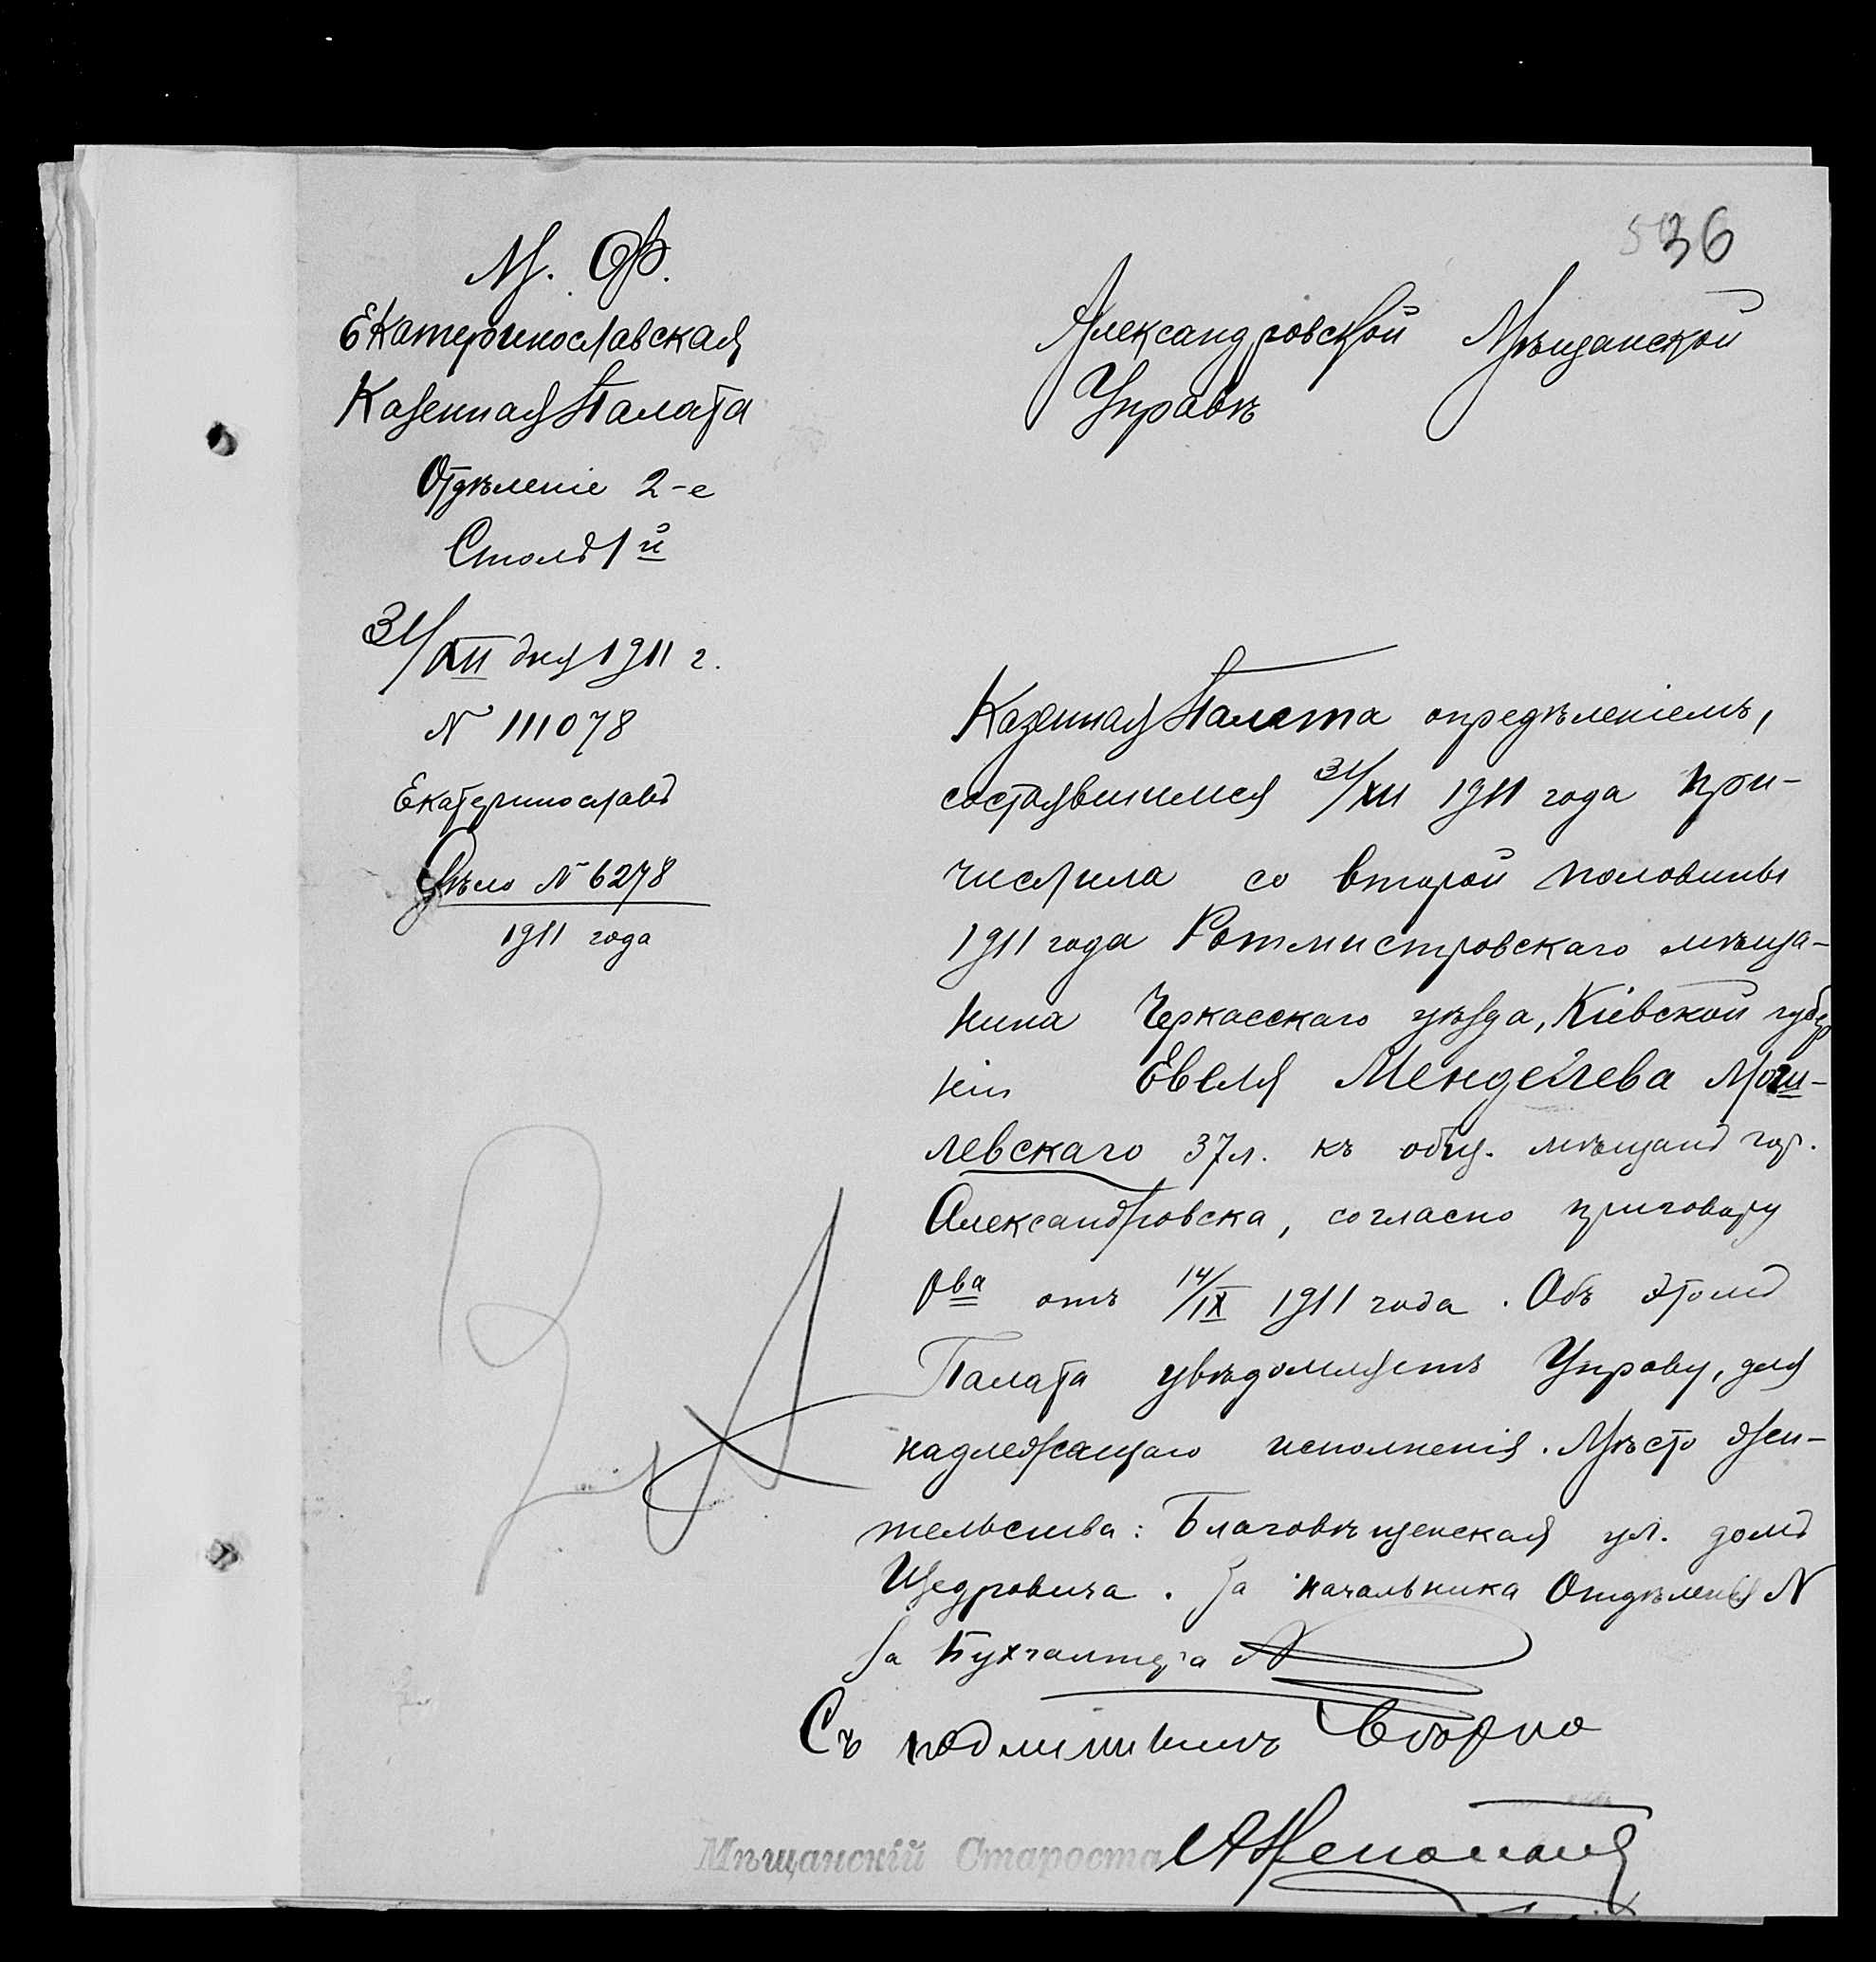 36
М. Ф.
Екатеринославская
Казенная Палата
Отдѣленіе 2-е
Столъ 1й
31/XII дня 1911 г.
№ 111078
Екатеринославъ
Дѣло № 6278
1911 года
Александровской Мѣщанской
Управѣ
Казенная Палата опредѣленіемъ,
состоявшимся 31/XII 1911 года при-
числила со второй половины
1911 года Ротмистровскаго мѣща-
нина Черкасскаго уѣзда, Кіевской губер
ніи Евеля Менделева Моги-
левскаго 37 л. къ общ. мѣщанъ гор.
Александровска, согласно приговору
о-ва отъ 14/IX 1911 года. Объ этомъ
Палата увѣдомляетъ Управу, для
надлежащаго исполненія. Мѣсто жи-
тельства: Благовѣщенская ул. домъ
Щедровича. За Начальника Отдѣленія N
За Бухгалтера N
Съ подлиннымъ вѣрно
Мѣщанскій Староста